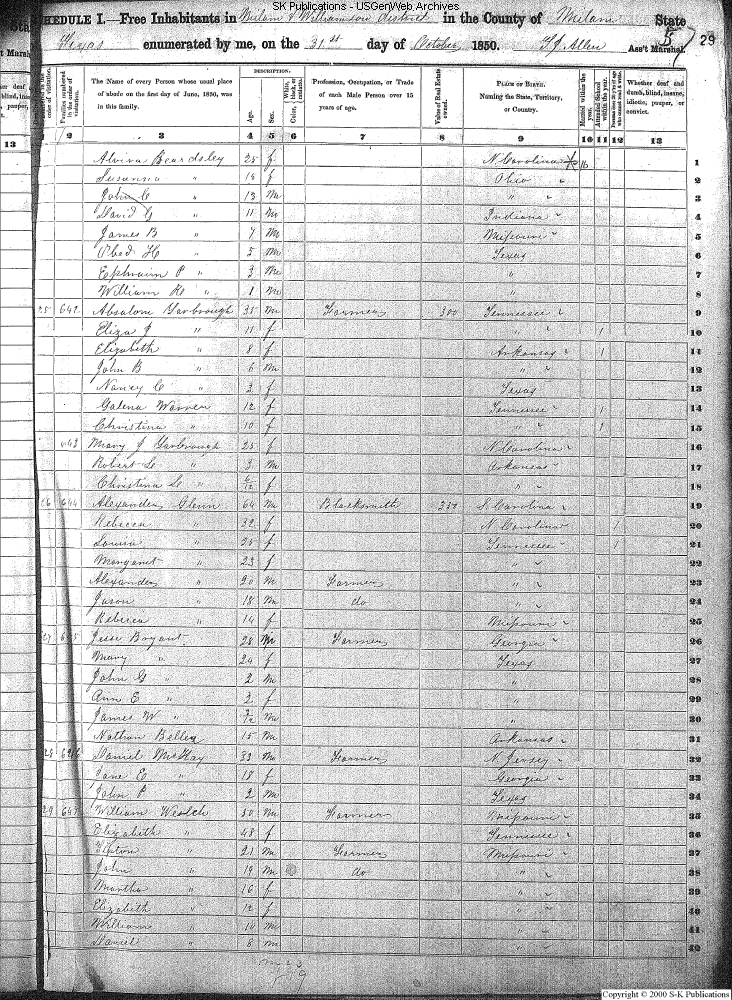 SK Publications - USGenWeb Archives
SCHEDULE I.—Free Inhabitants in Milam & Williamson District in the County of Milam State
Texas enumerated by me, on the 31st day of October 1850. Ass't Marshal.
5 29
DESCRIPTION.
The Name of every Person whose usual place of abode on the first day of June, 1850, was in this family.
Age. Sex. Color, White, black, or mulatto.
Profession, Occupation, or Trade of each Male Person over 15 years of age.
Value of Real Estate owned.
PLACE OF BIRTH. Naming the State, Territory, or Country.
Married within the year. Attended School within the year.
Whether deaf and dumb, blind, insane, idiotic, pauper, or convict.
13 1 2 3 4 5 6 7 8 9 10 11 12 13
Alvira Beardsley 25 f N Carolina 1
Susanna " 18 f Ohio " 2
John C " 13 m " " 3
David G " 11 m Indiana " 4
James B " 7 m Missouri " 5
Obed H " 5 m Texas 6
Ephraim P " 3 m " 7
William R " 1 m " 8
25 642 Absalom Yarbrough 35 m Farmer 300 Tennessee " 9
Eliza J " 11 f " " 1 10
Elizabeth " 8 f Arkansas " 1 11
John B " 6 m " " 12
Nancy C " 3 f Texas 13
Galena Warren 12 f Tennessee " 1 14
Christina " 10 f " " 1 15
643 Mary J Yarbrough 25 f N Carolina " 16
Robert L " 3 m Arkansas " 17
Christina L " 6/12 f " " 18
26 644 Alexander Glenn 64 m Blacksmith S. Carolina " 19
Rebecca " 32 f N Carolina 1 20
Louisa " 25 f Tennessee " 1 21
Margaret " 23 f " " 22
Alexander " 20 m Farmer " " 23
Jason " 18 m do " " 24
Rebecca " 14 f Missouri " 25
27 645 Jesse Bryant 28 m Farmer Georgia " 26
Mary " 24 f Texas 27
John G " 2 m " 28
Ann E " 3 f " 29
James W " m " 30
Nathan 15 m Arkansas " 31
28 646 Daniel McKay 33 m Farmer N. Jersey " 32
Jane E " 18 f Georgia " 33
John P " 2 m Texas 34
29 647 William Weolch 50 m Farmer Missouri " 35
Elizabeth " 48 f Tennessee " 36
Tipton " 21 m Farmer Missouri " 37
John " 19 m do " " 38
Martha " 16 f " " 39
Elizabeth " 12 f " " 40
William " 10 m " " 41
Daniel " 8 m " " 42
Copyright © 2000 S-K Publications